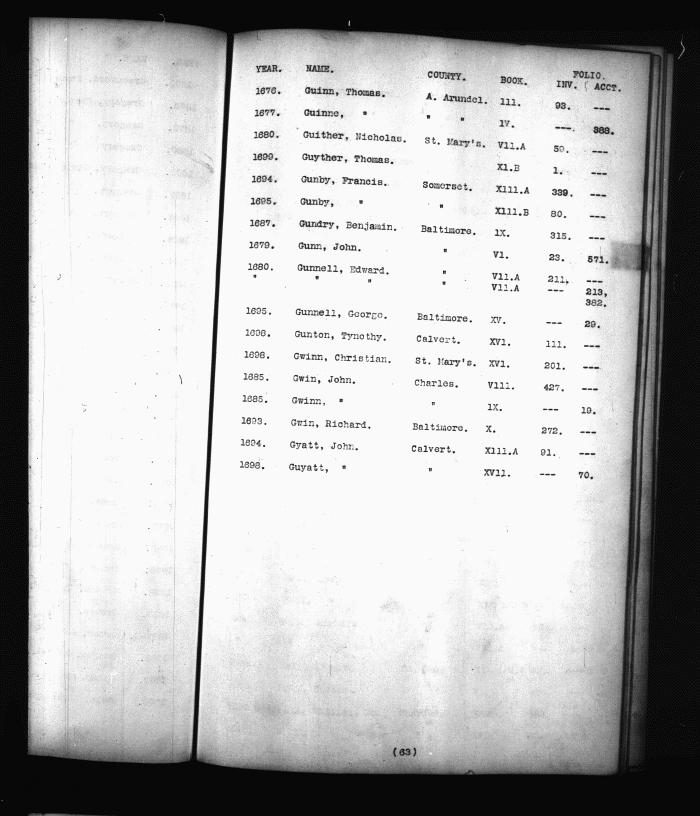 FOLIO.
YEAR. NAME. COUNTY. BOOK. INV. ( ACCT.
1676. Guinn, Thomas. A. Arundel. 111. 93. ---
1677. Guinne, " " " 1V. ---. 388.
1680. Guither, Nicholas. St. Mary's. V11.A 59. ---
1699. Guyther, Thomas. X1.B 1. ---
1694. Gunby, Francis. Somerset. X111.A 339. ---
1695. Gunby, " " X111.B 80. ---
1687. Gundry, Benjamin. Baltimore. 1X. 315. ---
1679. Gunn, John. " V1. 23. 571.
1680. Gunnell, Edward. " V11.A 211. ---
" " " " V11.A --- 213,
382.
1695. Gunnell, George. Baltimore. XV. --- 29.
1698. Gunton, Tymothy. Calvert. XV1. 111. ---
1698. Gwinn, Christian. St. Mary's. XV1. 201. ---
1685. Gwin, John. Charles. V111. 427. ---
1685. Gwinn, " " 1X. --- 19.
1693. Gwin, Richard. Baltimore. X. 272. ---
1694. Gyatt, John. Calvert. X111.A 91. ---
1698. Guyatt, " " XV11. --- 70.
(63)